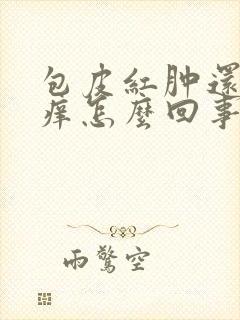 包皮紅肿還
痒怎麼回事
雨驚空